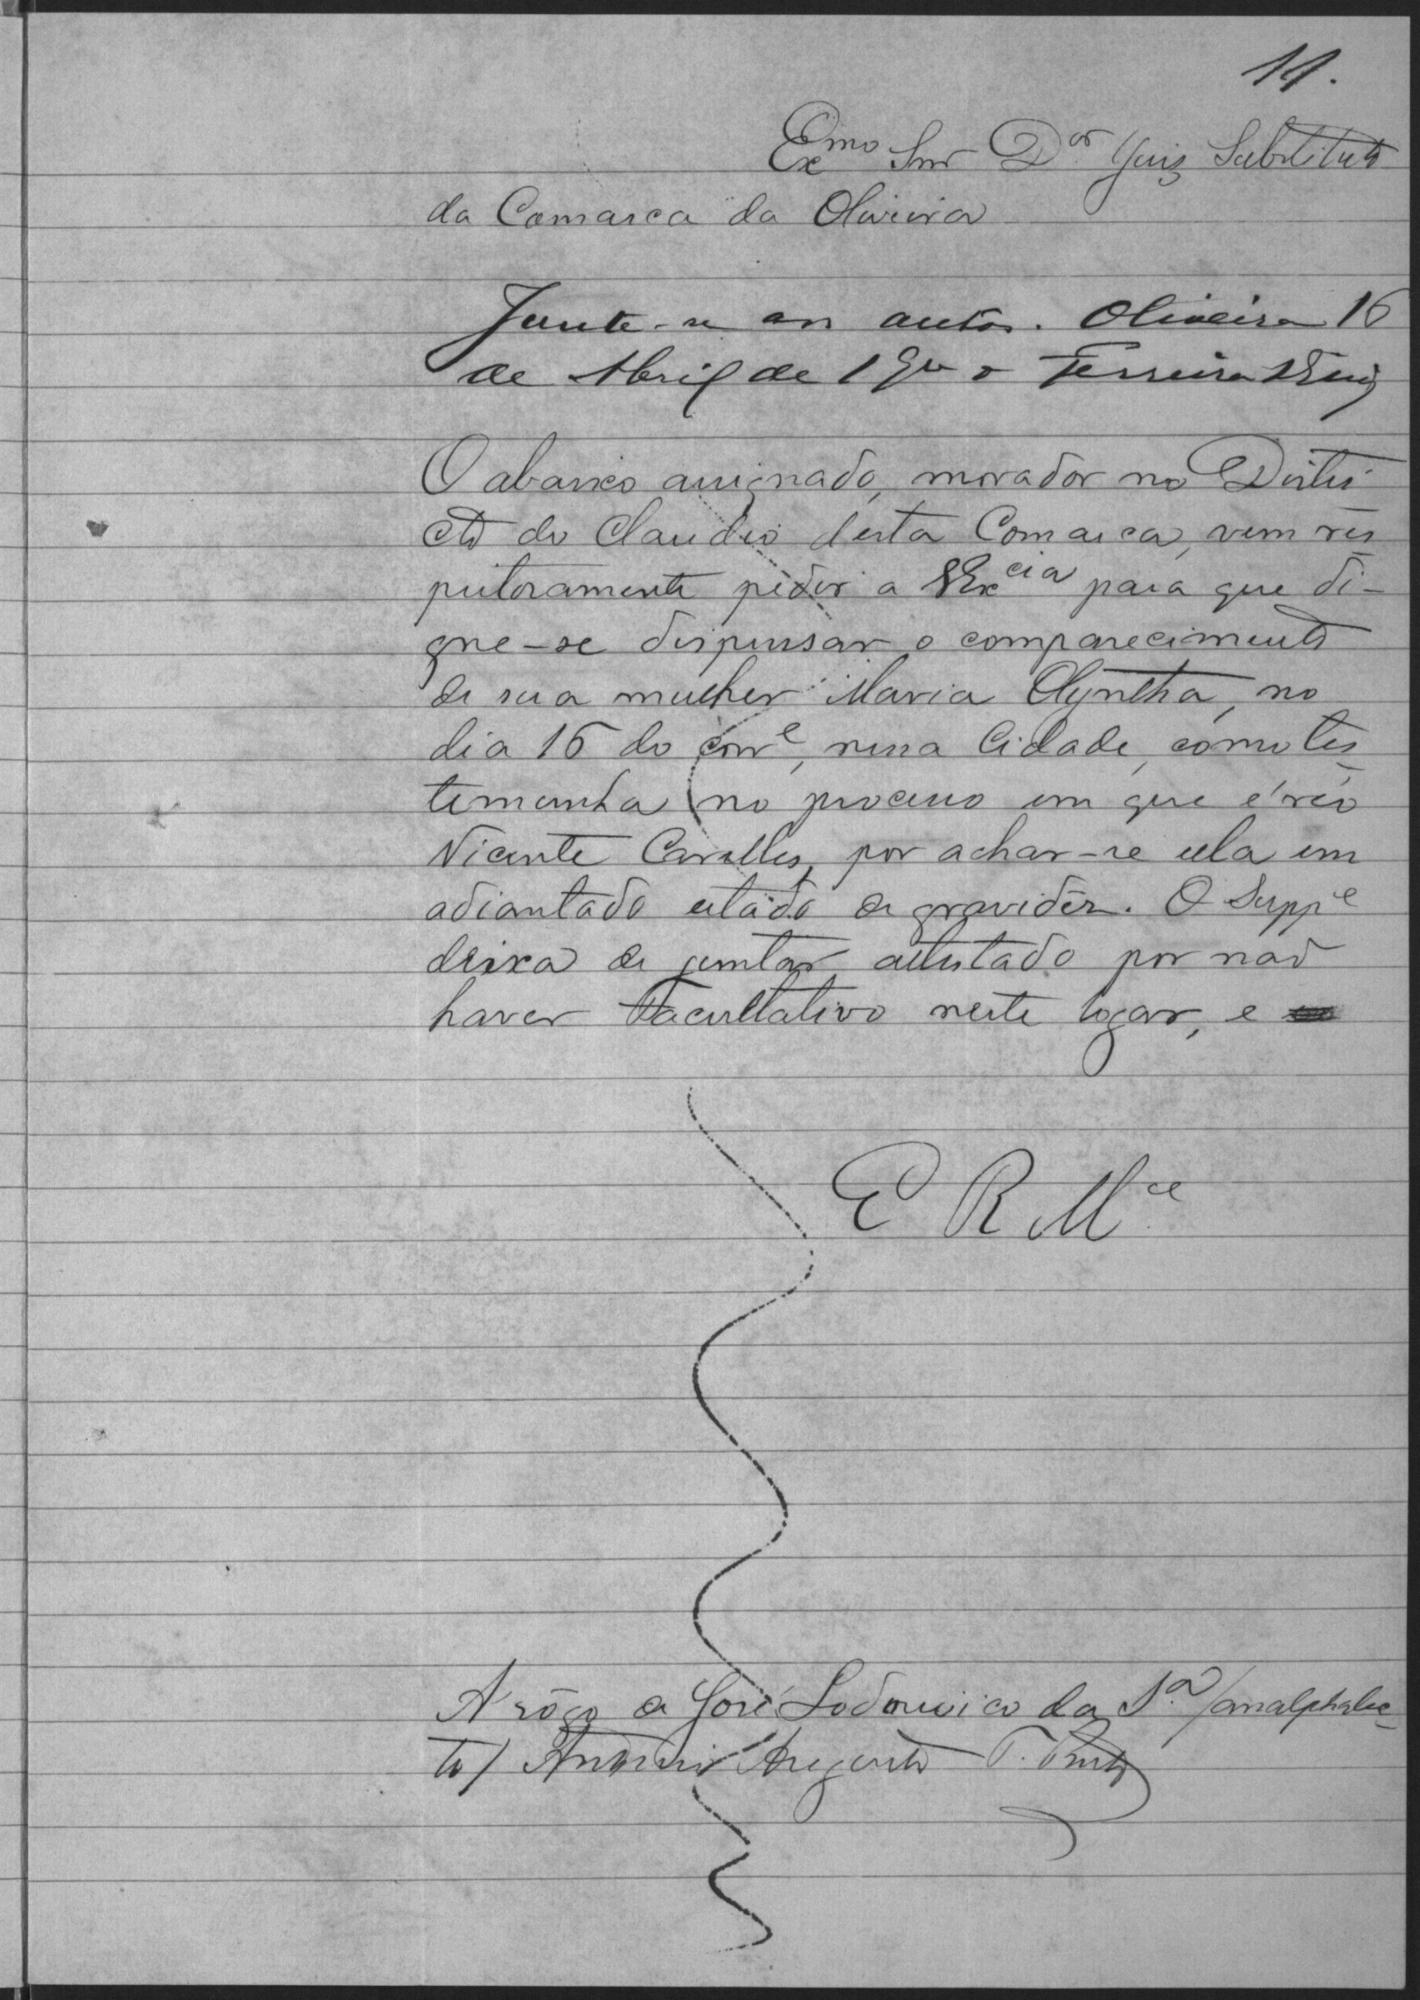 11.
Exmo Snr Dor Juiz Substituto
da Comarca da Oliveira
Junte-se aos autos. Oliveira 16
de Abril de Ferreira
O abaixo assignado, morador no Distri
cto do Claudio desta Comarca, vem res
peitosamente pedir a VExcia para que di-
gne-se dispensar o comparecimento
de sua mulher Maria Olyntha, no
dia 16 do corre, nessa Cidade, como tes
temunha no processo em que é réo
Vicente por achar-se ella em
adiantado estado de gravidêz. O Suppe
deixa de juntar attestado por não
haver Facultativo neste logar, e
E R Mce
A rôgo de José Lodouvico da Sa /analphabe-
to/ Antonio Augusto T.